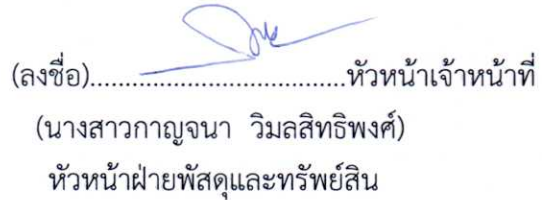 (ลงชื่อ)......................................หัวหน้าเจ้าหน้าที่
(นางสาวกาญจนา วิมลสิทธิพงศ์)
หัวหน้าฝ่ายพัสดุและทรัพย์สิน